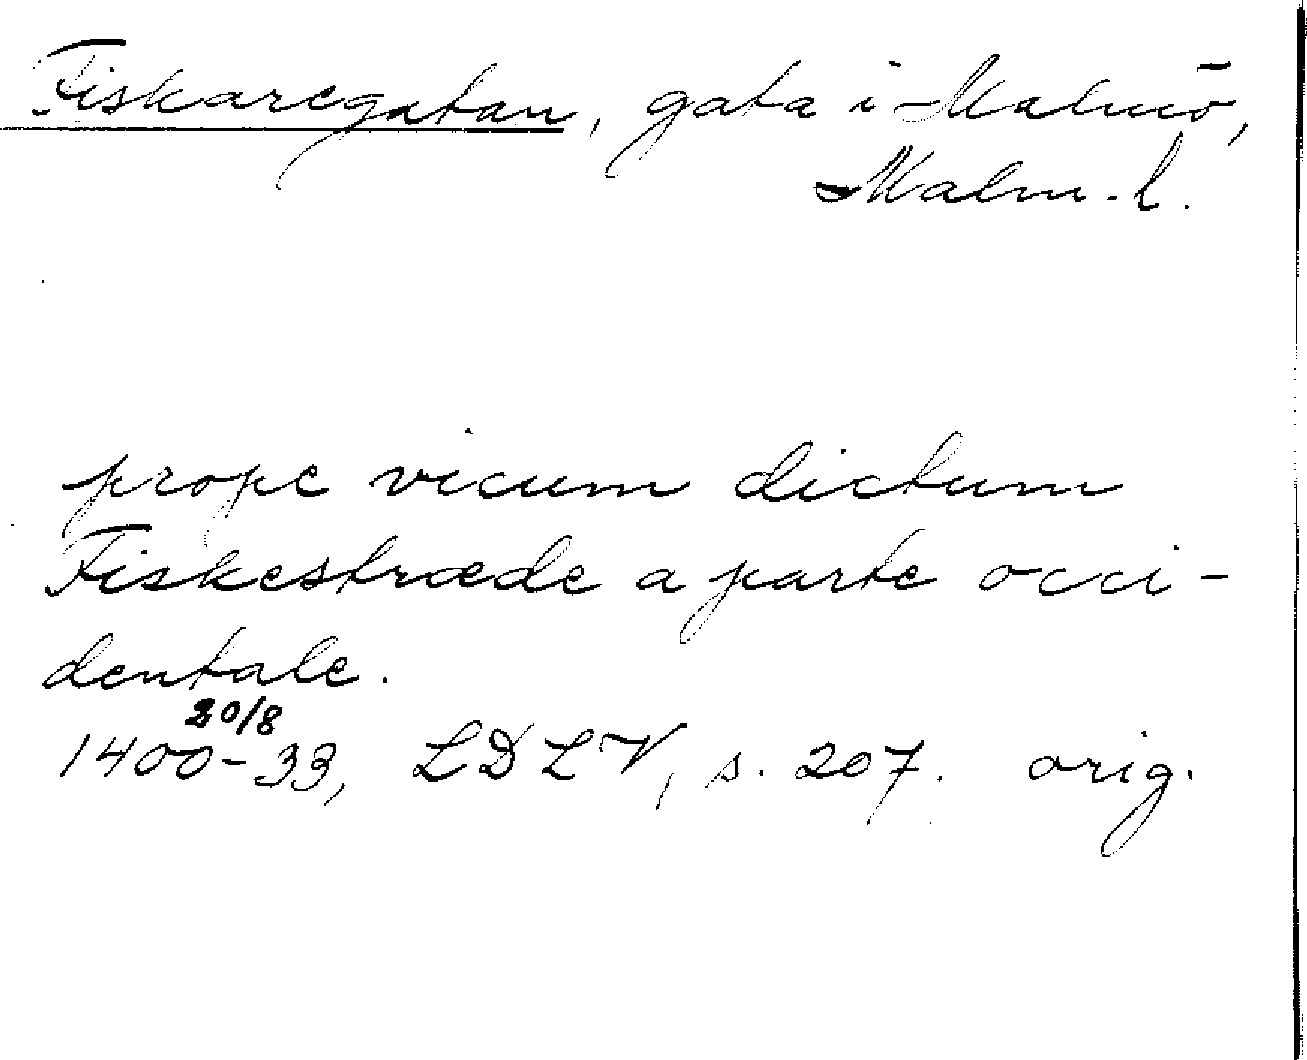 Fiskaregatan, gata i Malmö,
Malm. l.
prope vicum dictum
Fiskestræde a parte occi-
dentale.
20/8
1400-33, LDLV, s. 207. orig.